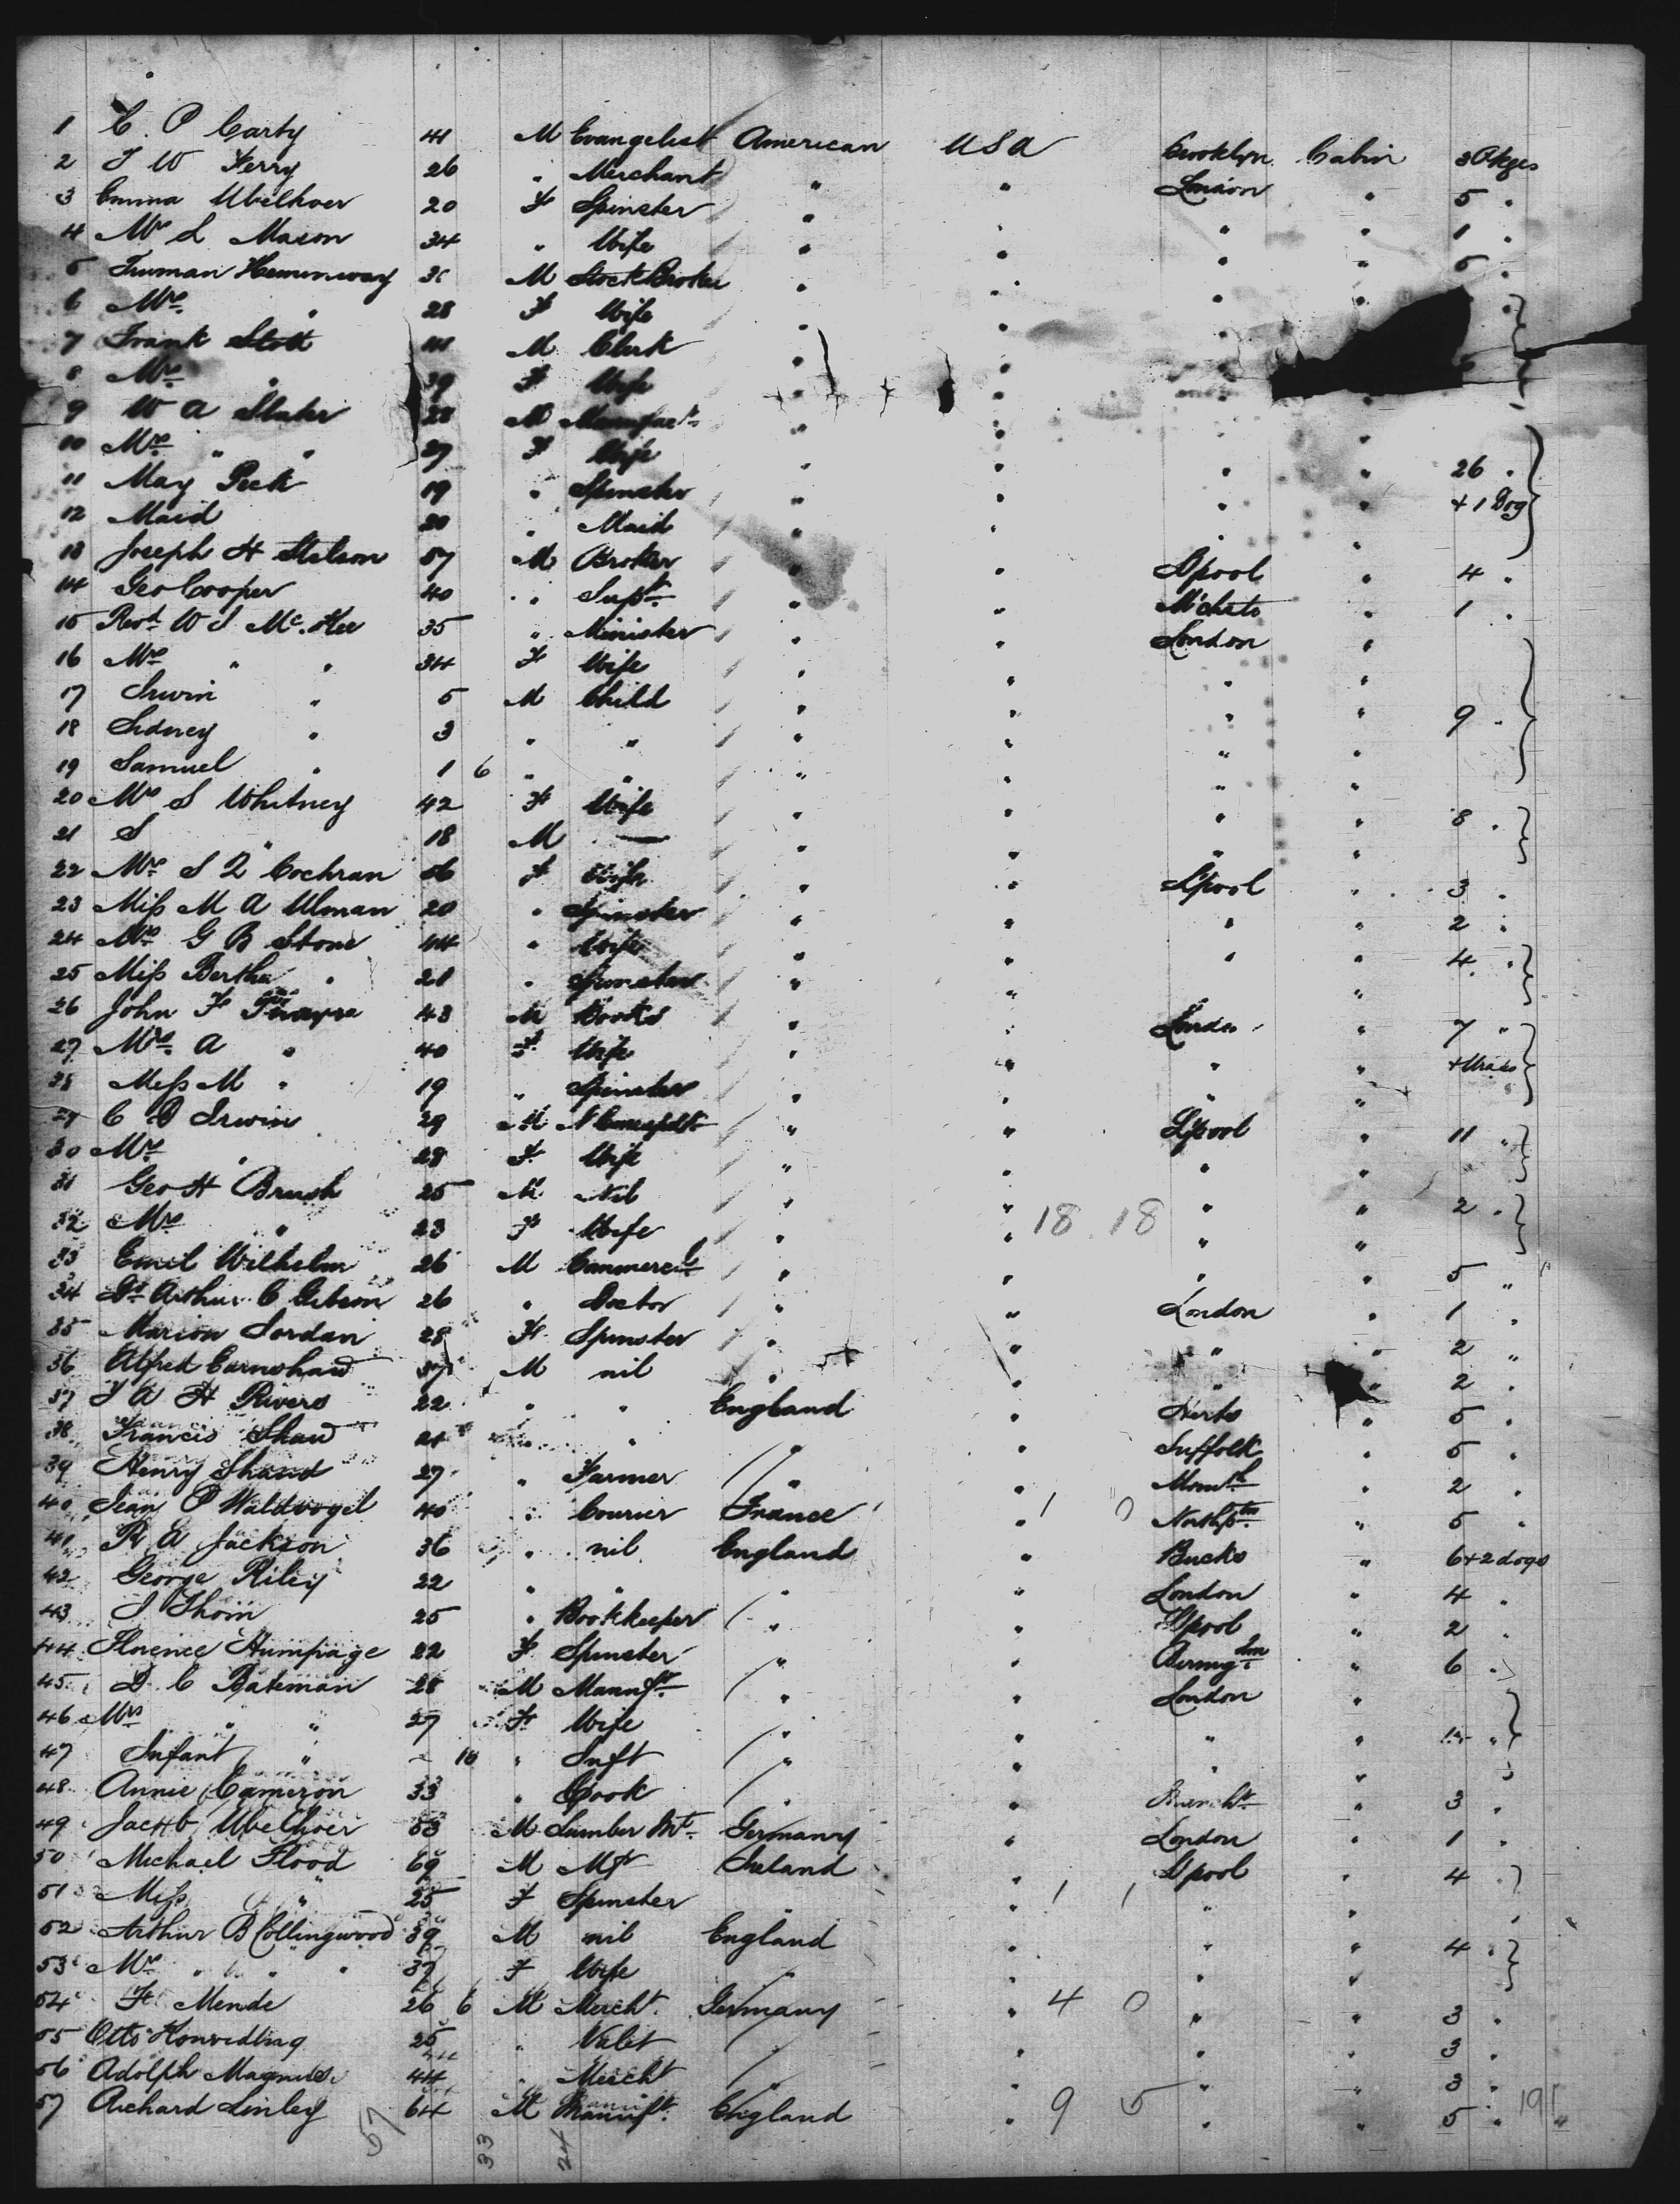 1 C. P Carty 41 M Evangelist American USA Brooklyn Cabin 3 Pkges
2 J W Ferry 26 " Merchant " " London " 5 "
3 Emma Ubelhoer 20 F Spinster " " " " 1 "
4 Mrs L Mason 34 " Wife " " " " 5 "
5 Truman Hemminway M Stock Broker " " "
6 Mrs " 28 F Wife " "
7 Frank Stott 41 M Clerk " "
8 Mrs " 39 F Wife " "
9 W A Slater 28 M Manufactr " "
10 Mrs " " 27 F Wife " " " " 26 "
11 May Peck 19 " Spinster " " " " + 1 Dog
12 Maid 20 " Maid " " " "
13 Joseph H Stetson 57 M Broker " " L'pool " 4 "
14 Geo Cooper 40 " Supt " " M'chstr " 1 "
15 Revd W J Mc.Kee 35 " Minister " " London "
16 Mrs " " 34 F Wife " " " "
17 Irwin " 5 M Child " " " " 9 "
18 Sidney " 3 " " " " " "
19 Samuel " 1 6 " " " " " "
20 Mrs S Whitney 42 F Wife " " " " 8 "
21 S " 18 M — " " " "
22 Mrs S Q Cochran 56 F Wife " " L'pool " 3 "
23 Miss M A Ulman 20 " Spinster " " " " 2 "
24 Mrs G B Stone 44 " Wife " " " " 4 "
25 Miss Bertha " 21 " Spinster " " "
26 John F 43 M Books " " London " 7 "
27 Mrs A " 40 F Wife " " " "
28 Miss M " 19 " Spinster " " " "
29 C D Irwin 29 M " " L'pool " 11 "
30 Mrs " 28 F Wife " " " "
31 Geo H Brush 25 M Nil " " " " 2 "
32 Mrs " 23 F Wife " " 18 18 " "
33 Emil Wilhelm 26 M Commercl " " " 5 "
34 Dr Arthur C Gibson 26 " Doctor " " London " 1 "
35 Marion Jordan 28 F Spinster " " " " 2 "
36 Alfred Earnshaw 37 M nil " " " " 2 "
37 T A H Rivers 22 " " England " Herts " 5 "
38 Francis Shaw 21 " " " Suffolk " 5 "
39 Henry Shand 27 " Farmer " " Monmth " 2 "
40 Jean P Waldvogel 40 " Courier France " 1 0 Northptn " 5 "
41 R A Jackson 36 " nil England " Bucks " 6 + 2 dogs
42 George Riley 22 " " " " London " 4 "
43 J Thom 25 " Bookkeeper " " L'pool " 2 "
44 Florence Humpage 22 F Spinster " " Birmghm " 6 "
45 D C Bateman 28 M Manufr " " London "
46 Mrs " " 27 F Wife " " " "
47 Infant " 10 " Inft " " " "
48 Annie Cameron 33 " Cook " " 3 "
49 Jacob Ubelhoer 53 M Lumber Mt Germany " London " 1 "
50 Michael Flood 69 M Mt Ireland L'pool " 4 "
51 Miss " 25 F Spinster " 1 1 " "
52 Arthur B Collingwood 39 M nil England " " " 4 "
53 Mrs " " " 37 F Wife " " "
54 F Mende 26 6 M Mercht Germany " 4 0 " " 3 "
55 Otto 25 " Valet " " " 3 "
56 Adolph Magnus 44 " Mercht " " " 3 "
57 Richard Linley 64 M Manuft England " 9 5 " " 5 " 191
57 33 24